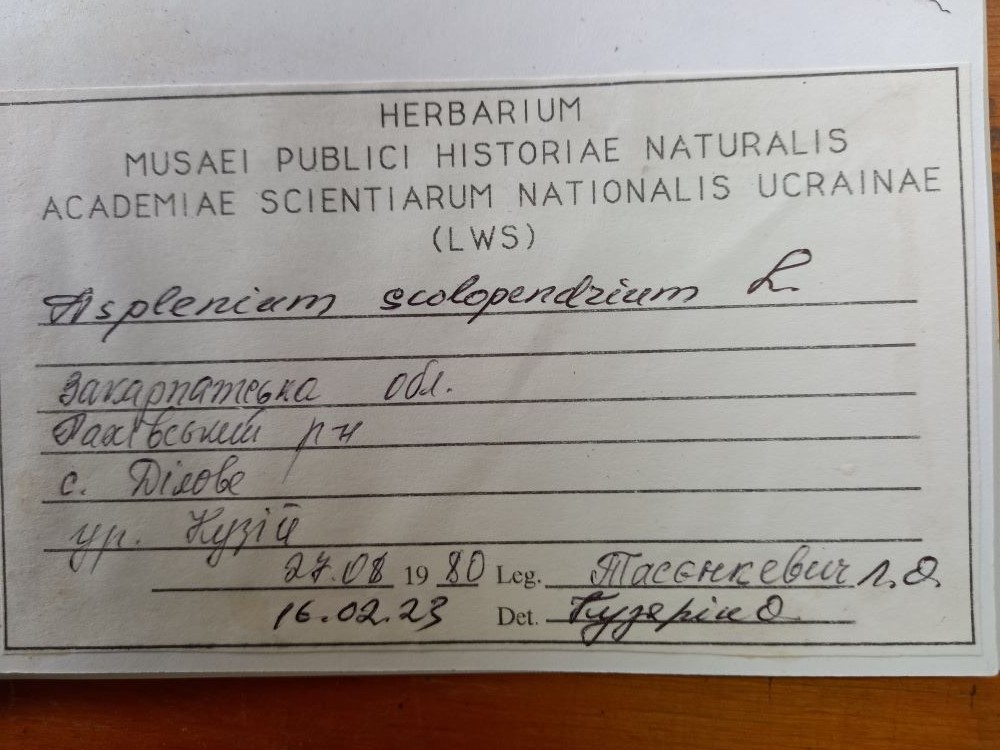 HERBARIUM
MUSAEI PUBLICI HISTORIAE NATURALIS
ACADEMIAE SCIENTIARUM NATIONALIS UCRAINAE
(LWS)
Asplenium scolopendrium L.
Закарпатська обл.
Рахівський р-н
с. Ділове
ур. Кузій
27.08 1980 Leg. Тасєнкевич Л.О.
16.02.23 Det. Кузярін О